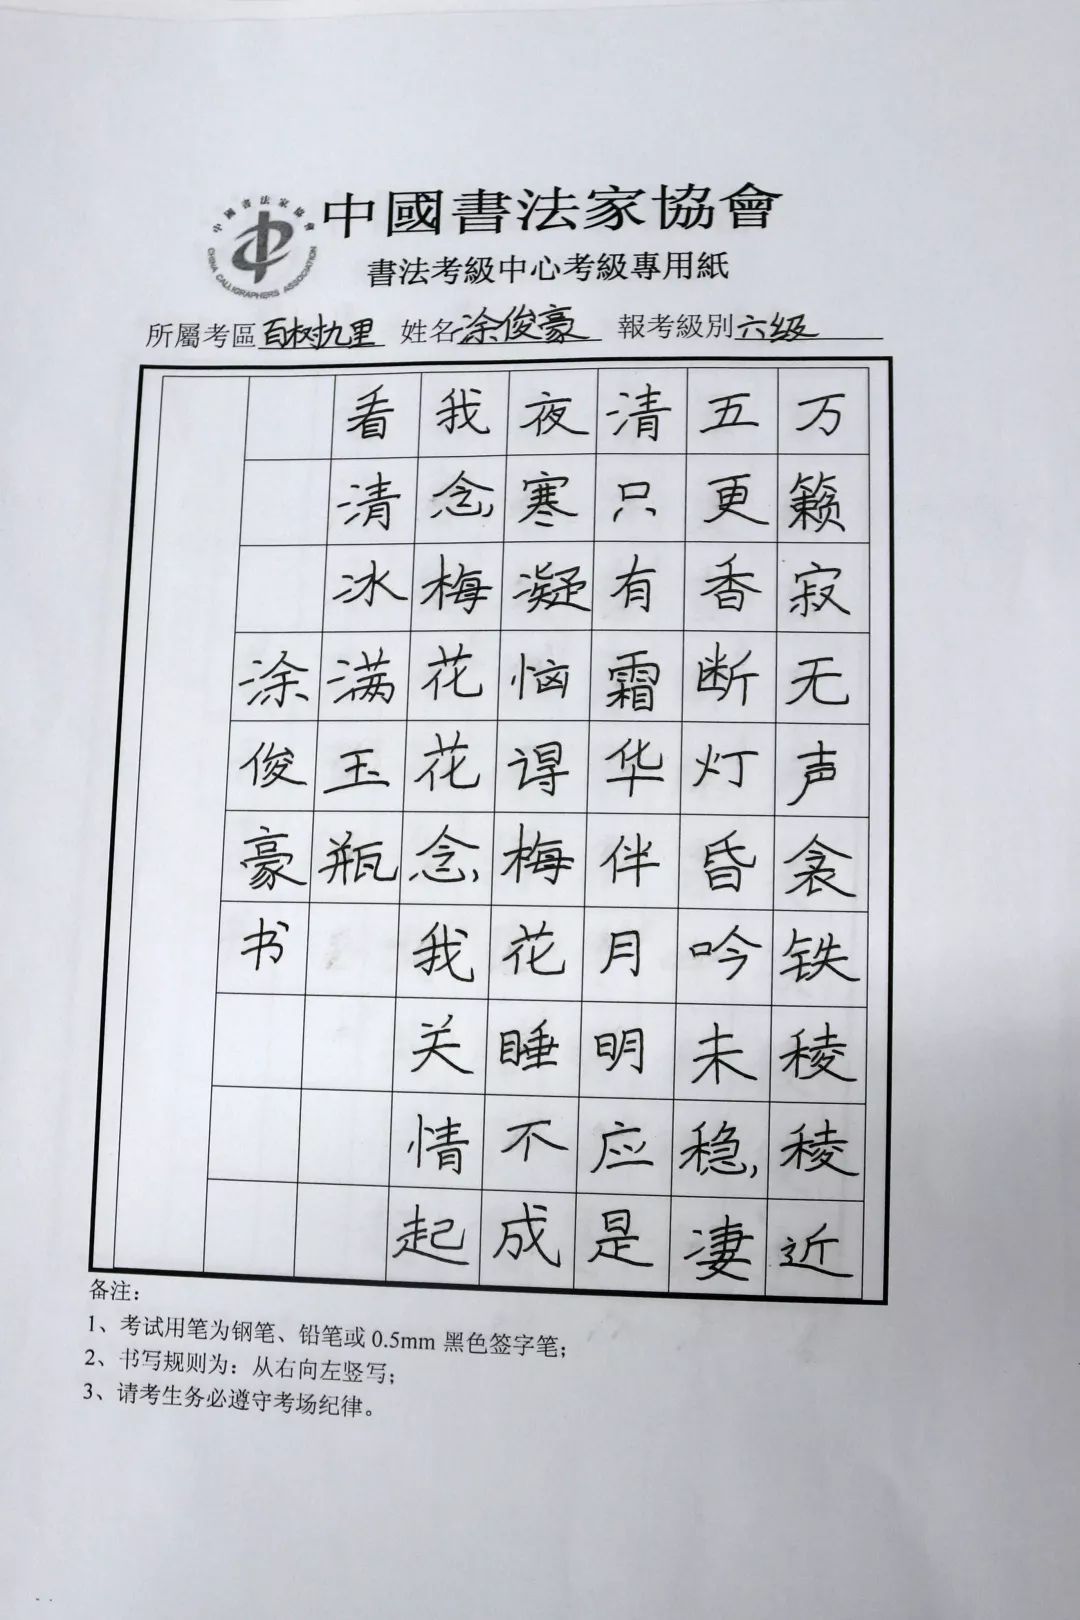 中國書法家協會
CHINA CALLIGRAPHERS ASSOCIATION
中國書法家協會
書法考級中心考級專用紙
所屬考區 百树九里 姓名 涂俊豪 報考級別 六级
万籁寂无声衾铁稜稜近
五更香断灯昏吟未稳,凄
清只有霜华伴月明应是
夜寒凝恼得梅花睡不成
我念梅花花念,我关情起
看清冰满玉瓶
涂俊豪书
备注：
1、考试用笔为钢笔、铅笔或0.5mm 黑色签字笔；
2、书写规则为：从右向左竖写；
3、请考生务必遵守考场纪律。